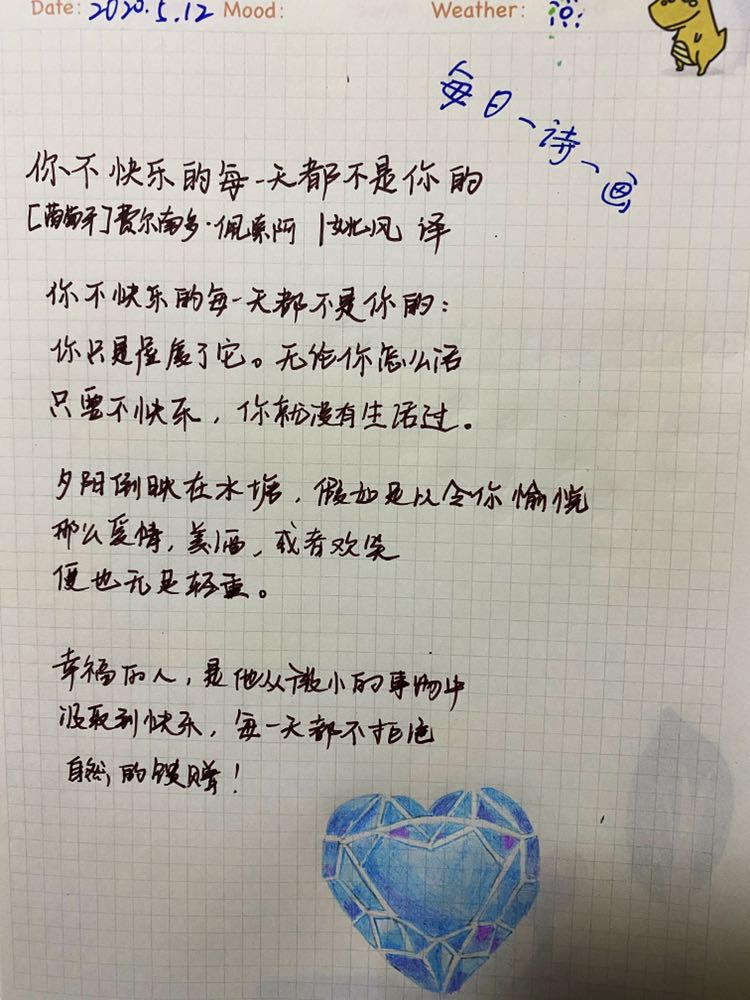 Date: 2020.5.12 Mood: Weather:
每日一诗一画
你不快乐的每一天都不是你的
[葡萄牙]费尔南多·佩索阿 |姚风 译
你不快乐的每一天都不是你的：
你只是虚度了它。无论你怎么活
只要不快乐，你就没有生活过。
夕阳倒映在水塘，假如足以令你愉悦
那么爱情，美酒，或者欢笑
便也无足轻重。
幸福的人，是他从微小的事物中
汲取到快乐，每一天都不拒绝
自然的馈赠！